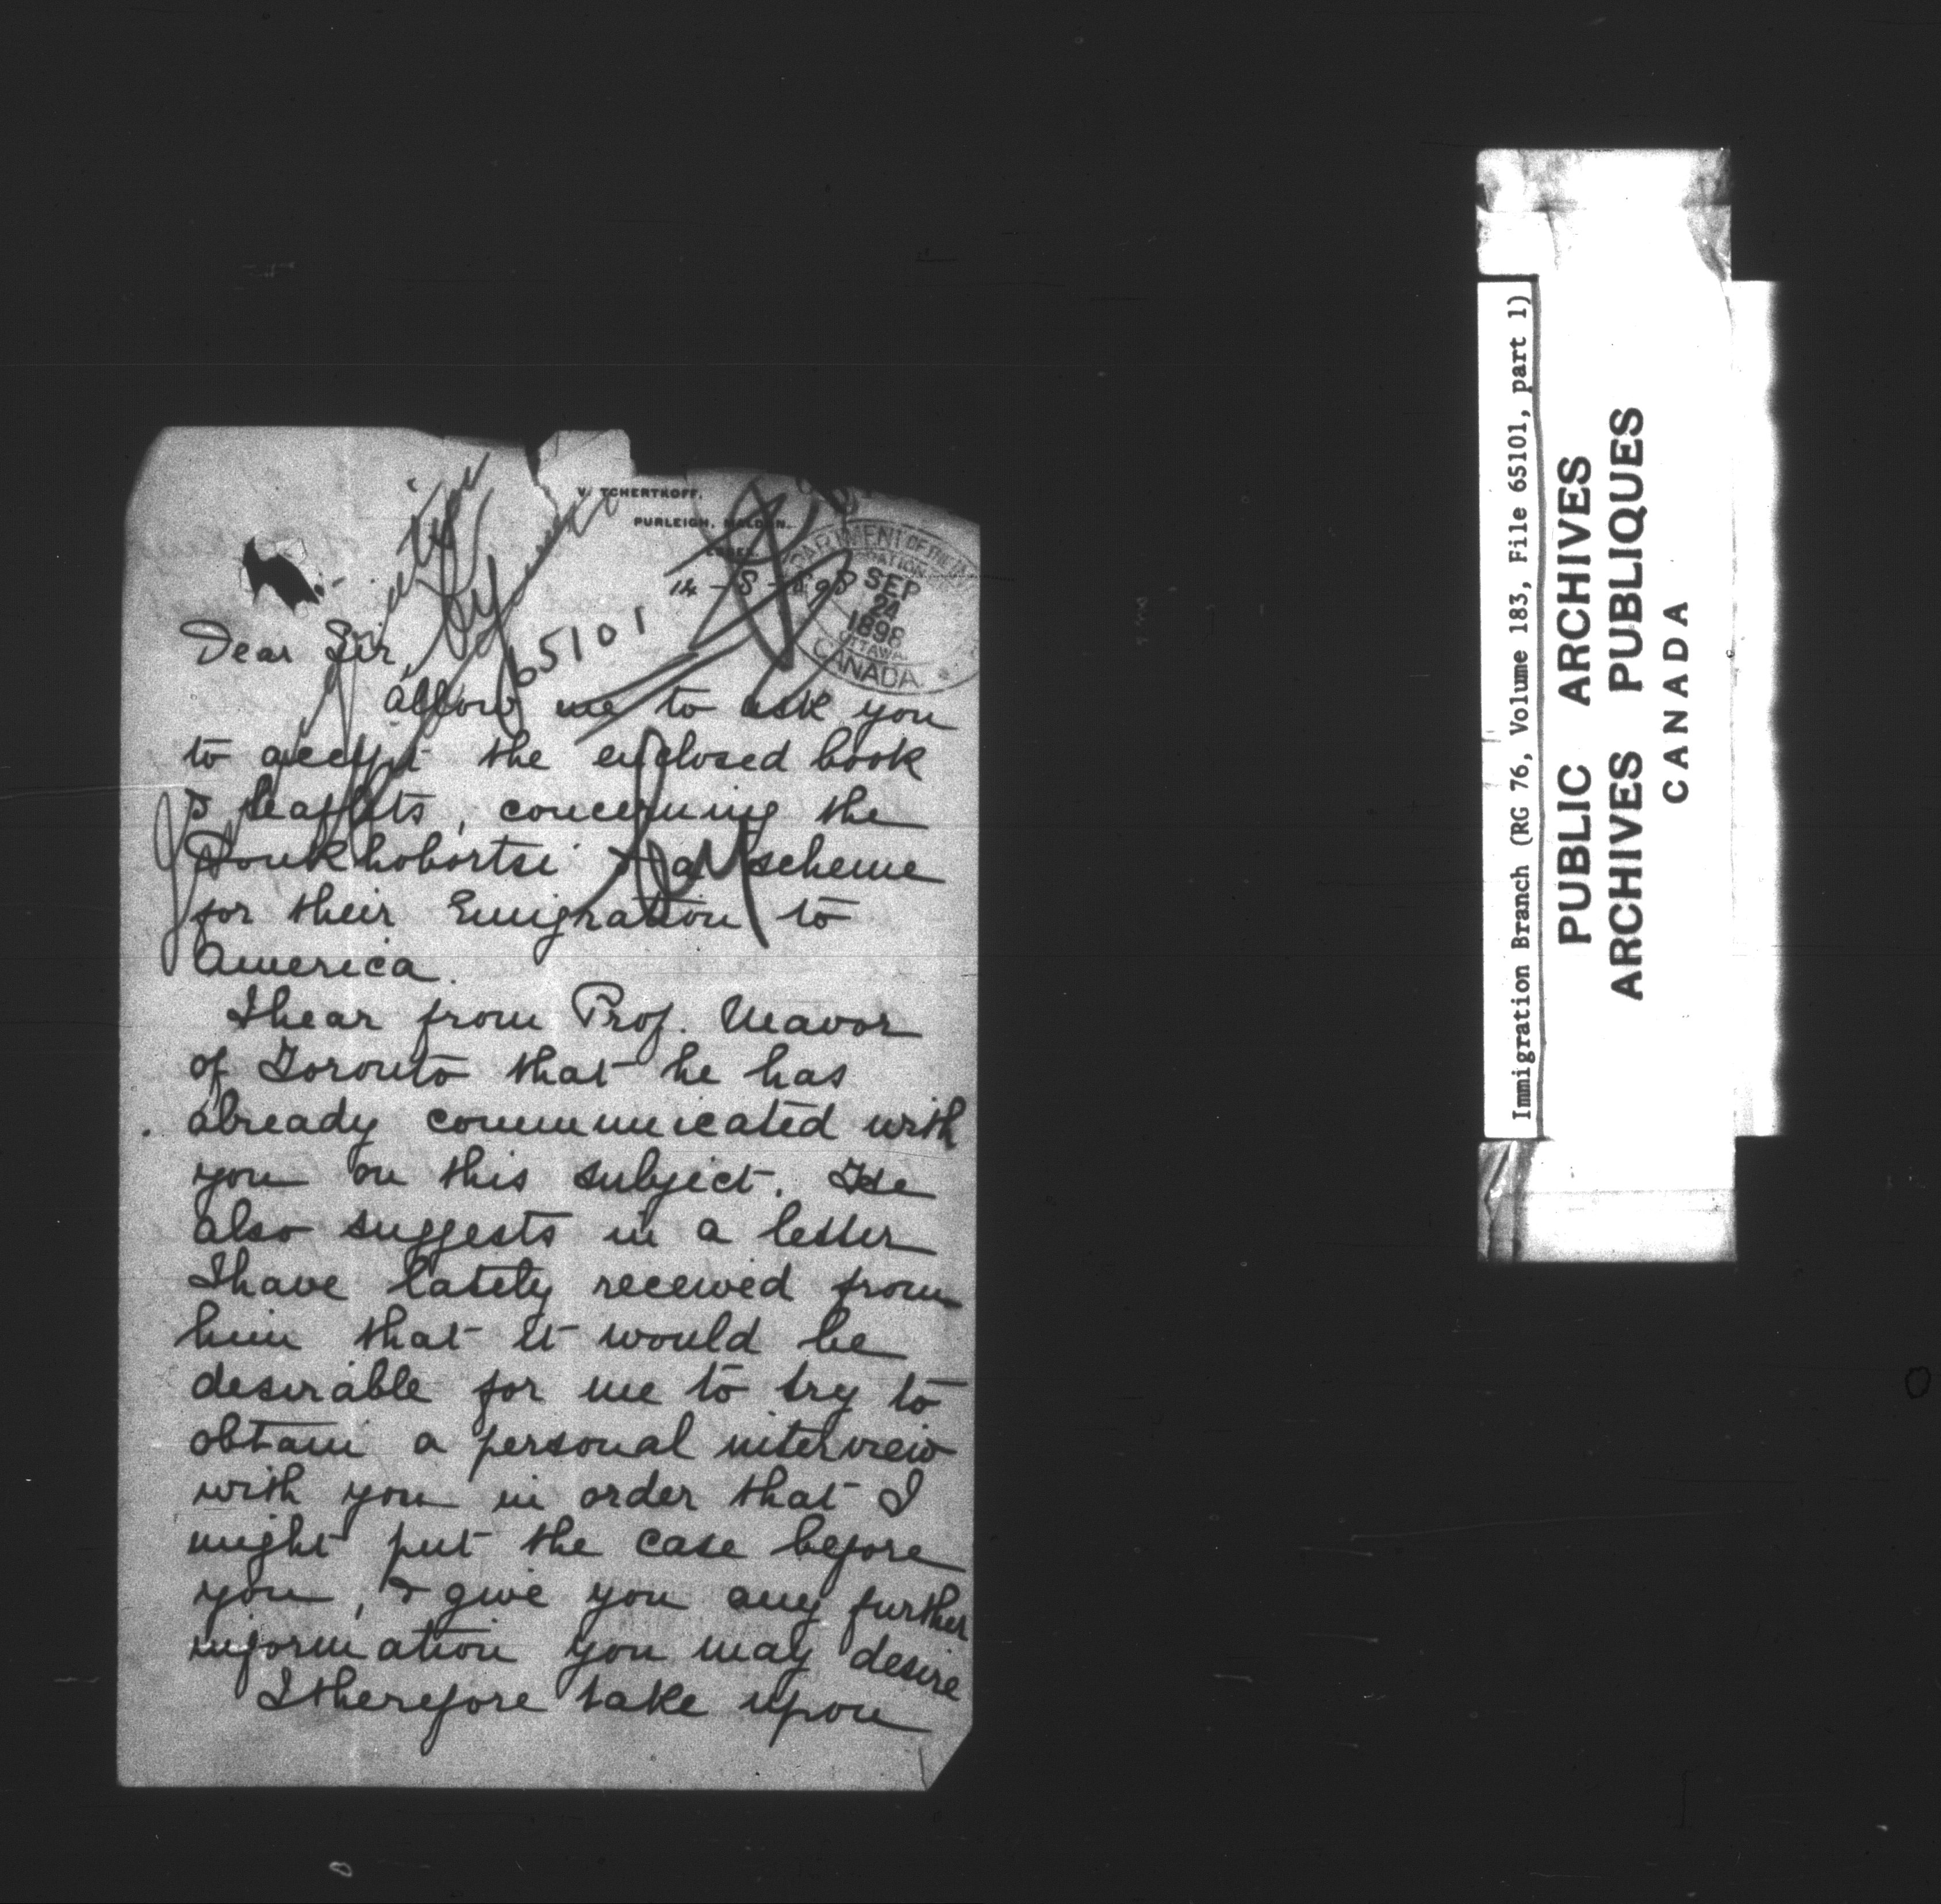 V. TCHERTKOFF,
PURLEIGH, MALDON.
ESSEX.
14-8-1898
DEPARTMENT OF THE
SEP
24
1898
OTTAWA.
CANADA.
65101
Dear Sir,
allow me to ask you
to accept the enclosed book
& leaflets, concerning the
Doukhobortsi & a scheme
for their Emigration to
America.
I hear from Prof. Mavor
of Toronto that he has
already communicated with
you on this subject. He
also suggests in a letter
I have lately received from
him that it would be
desirable for me to try to
obtain a personal interview
with you in order that I
might put the case before
you, & give you any further
information you may desire
I therefore take upon
Immigration Branch (RG 76, Volume 183, File 65101, part 1)
PUBLIC ARCHIVES
ARCHIVES PUBLIQUES
CANADA